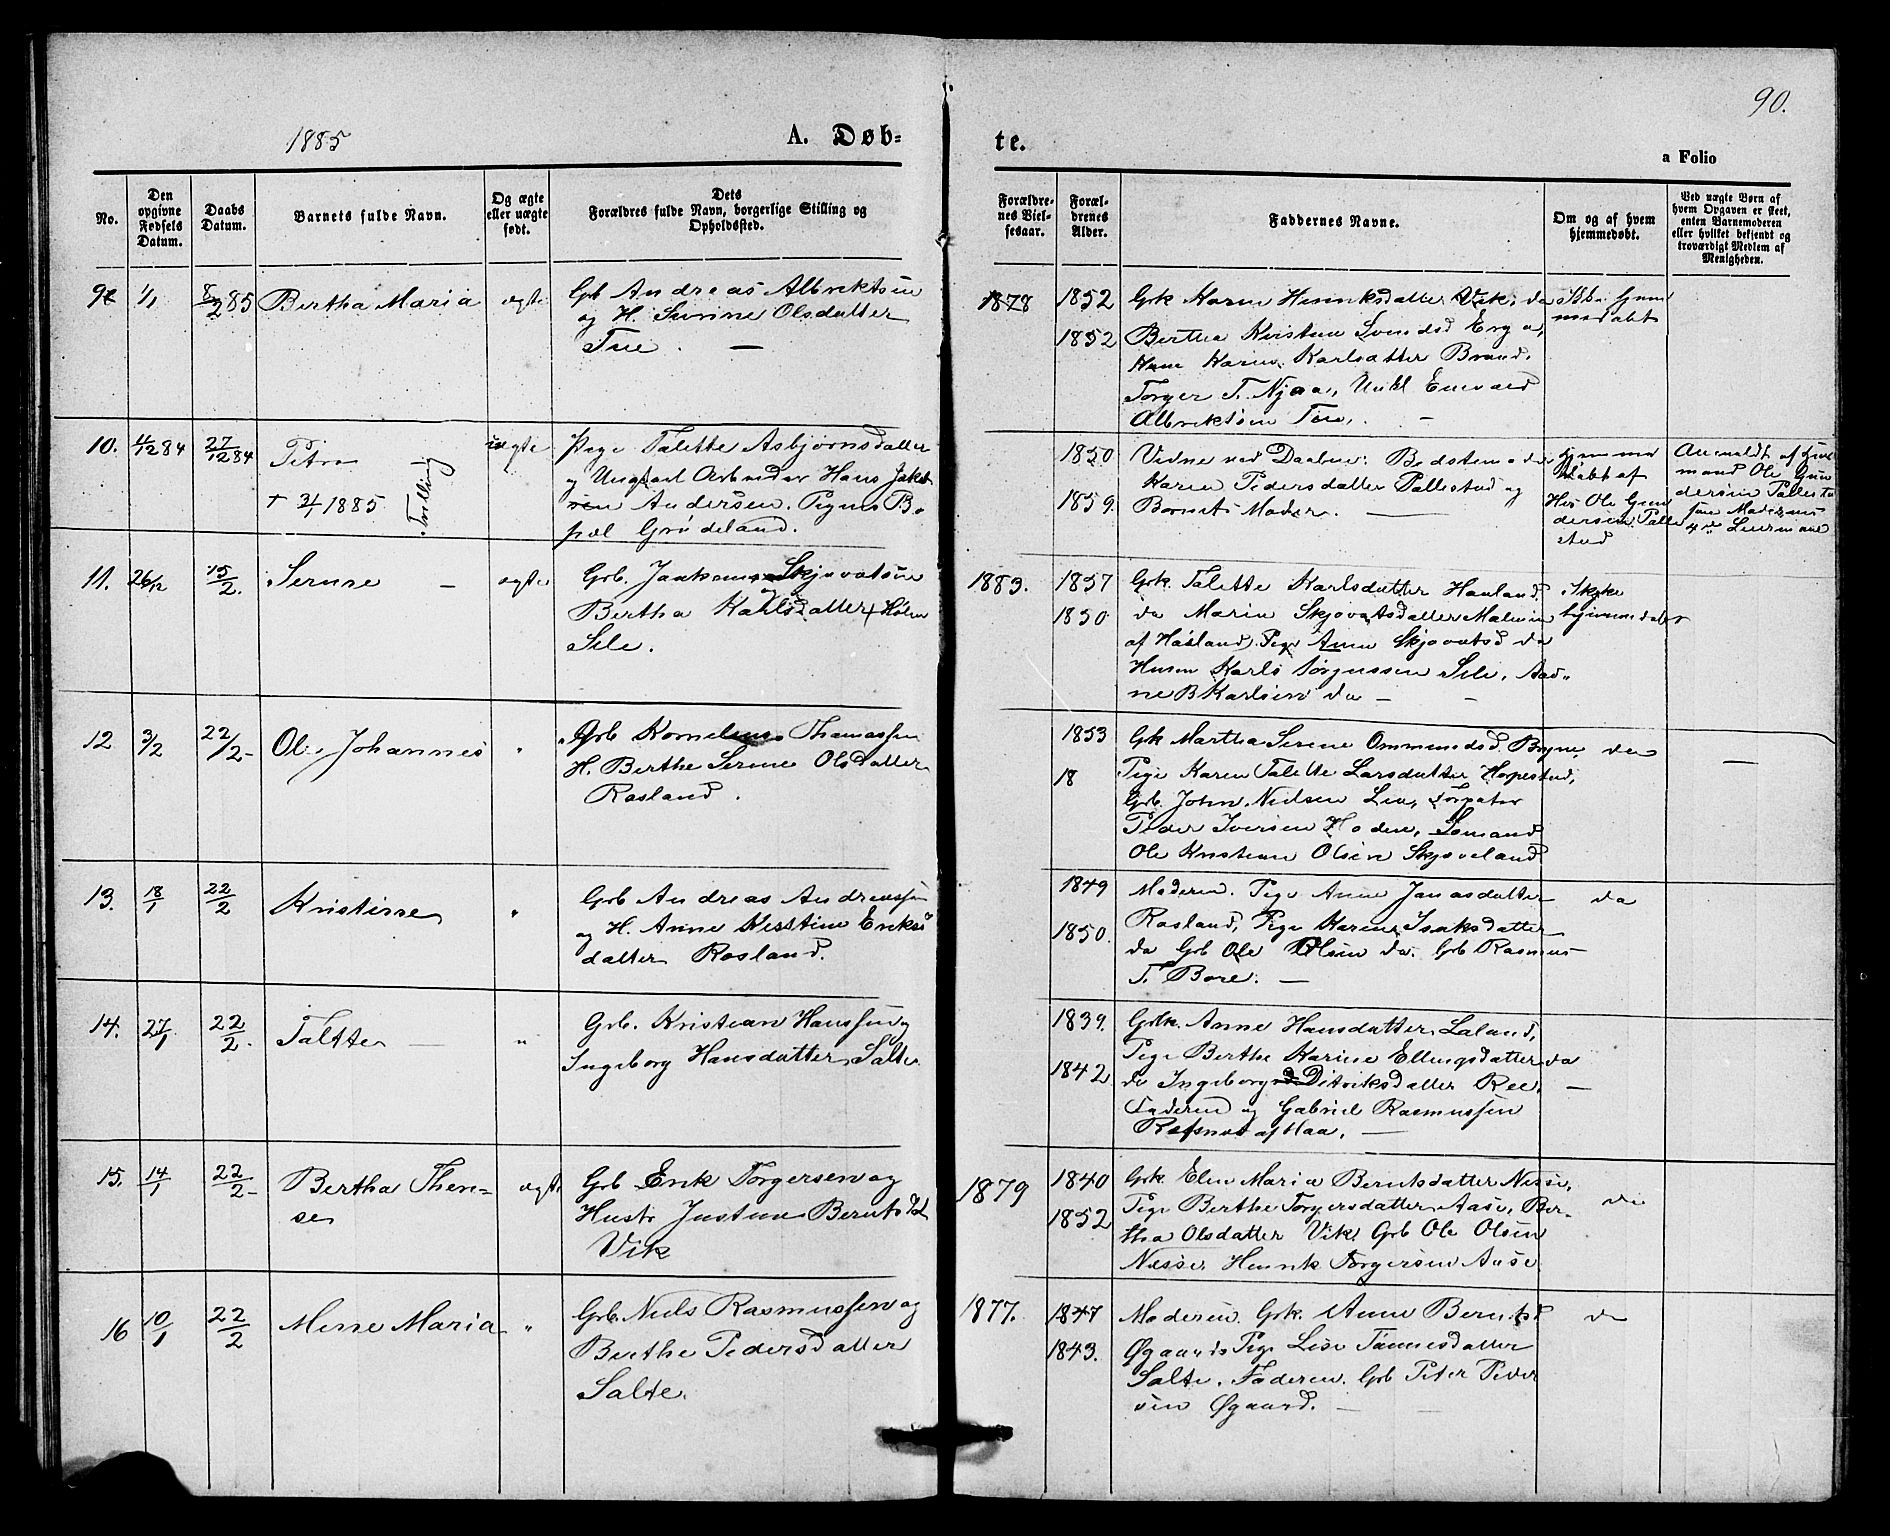 1885
A. Døb=
te.
90.
a Folio
No.
Den opgivne Fødsels Datum.
Daabs Datum.
Barnets fulde Navn.
Og ægte eller uægte født.
Dets
Forældres fulde Navn, borgerlige Stilling og
Opholdssted.
Forældrenes Vielsesaar.
Forældrenes Alder.
Faddernes Navne.
Om og af hvem hjemmedøbt.
Ved uægte Børn af
hvem Opgaven er skeet,
enten Barnemoderen
eller hvilket bekjendt og
troværdigt Medlem af
Menigheden.
9 1/1 8/2 85 Bertha Maria ægte
Gb Andreas Albrektsen
og H. Serine Olsdatter
Tue. —
1878 1852
1852
Grk Karen Henriksdatter Vik, da
Bertha Kirstine Svendsd
Karen Karlsdatter Braud.
Torger T. Njaa, Unkl Enevald
Albrektsen Tue, —
10. 4/12 84 27/12 84 Petra uægte
† 3/1 1885 Tvilling
Pige Talette Asbjørnsdatter
og Ungkarl Arbeider Hans Jakob
Andersen. Pigens Bo
pæl Grødeland.
1850
1859.
Vidne ved Daaben: Bedstemoder
Karen Pedersdatter Pallestad og
Barnets Moder. —
Hjemme
døbt af
Hus Ole Gun
dersen Palle
stad
Anmeldt af Huus
mand Ole Gun
dersen Pallesta
11. 26/12 15/2. Serine — ægte
Grb. Skjovatsen
Bertha Karlsdatter
Sele.
1883. 1857
1850
Grk. Talette Karlsdatter Hauland.
da Marin Skjovatsdatter
af Høiland. Pige Anne Skjovatsd da
Husm Karls Torgussen Sele, Aad=
ne B Karlsen da —
12 3/2 22/2 Ole Johannes "
Grb Kornelius Thomassen
H. Berthe Serine Olsdatter
Rosland.
1853
18
Gk Martha Serene Ommundsd. Bryne,
Pige Karen Talette Larsdatter Horpestad,
Grb. John Nielsen Lea,
Peder Iversen Hoden, Sømand
Ole Kristian Olsen Skjæveland
da
—
13. 18/1 22/2 Kristine "
Grb Andreas Andreassen
og H. Anne Kirstine Eriks
datter Rosland.
1849
1850.
Moderen. Pige Anne Jonasdatter
Rosland, Pige Karine Isaksdatter
da Grb Ole Olsen da. Grb Rasmus
T. Bore. —
da
14. 27/1 22/2. Taltte — "
Grb. Kristian Hanssen og
Ingeborg Hansdatter Salte
1839.
1842
Grk. Anne Hansdatter Laland,
Pige Berthe Karine Ellingsdatter
da Ingeborg Ditriksdatter Ree,
Faderen og Gabriel Rasmussen
Refsnes af Haa. —
da
—
15. 14/1 22/2 Bertha There=
se ægte
Grb Erik Torgersen og
Hustr Justine Berntsdat
Vik
1879 1840
1852
Grk. Elen Maria Berntsdatter Nesse,
Pige Berthe Torgersdatter Aase, Ber=
tha Olsdatter Vik, Grb Ole Olsen
Næsse, Henrik Torgersen Aase
da
16 10/1 22/2 Merre Maria "
Grb. Niels Rasmussen og
Berthe Pedersdatter
Salte.
1877. 1847
1843.
Moderen. Grk. Anne Berntsd
Øgaard, Pige Lise Tønnesdatter
Salte. Faderen. Grb Peter Peder
sen Øgaard. —
da